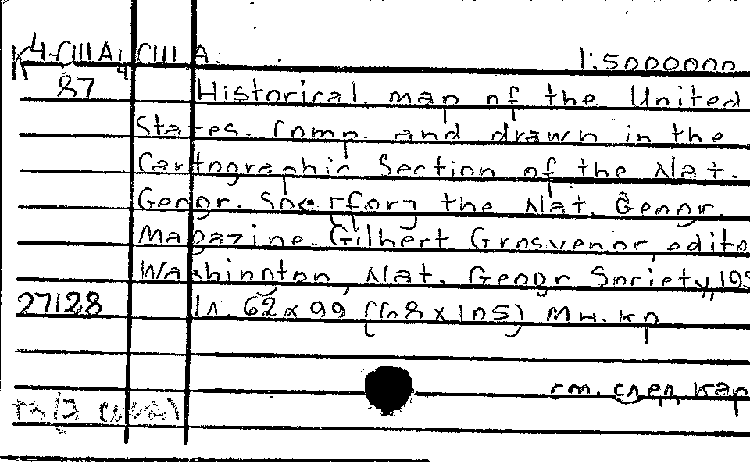 К4-СШАi США 1:5000000
87 Historical map of the United
States. Comp. and drawn in the
Cartographic Section of the Nat.
Geogr. Soc. [for] the Nat. Geogr.
Magazine. Gilbert Grosvenor, edito
Washington, Nat. Geogr. Society, 195
27128 1л. 62x99 (68x105) Мн. кр
см. след. кар